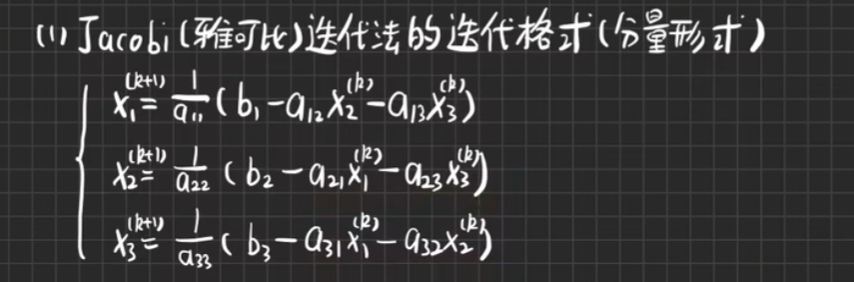 (1) Jacobi(雅可比)迭代法的迭代格式(分量形式)
x₁^(k+1) = 1/a₁₁ (b₁ - a₁₂x₂^(k) - a₁₃x₃^(k))
x₂^(k+1) = 1/a₂₂ (b₂ - a₂₁x₁^(k) - a₂₃x₃^(k))
x₃^(k+1) = 1/a₃₃ (b₃ - a₃₁x₁^(k) - a₃₂x₂^(k))